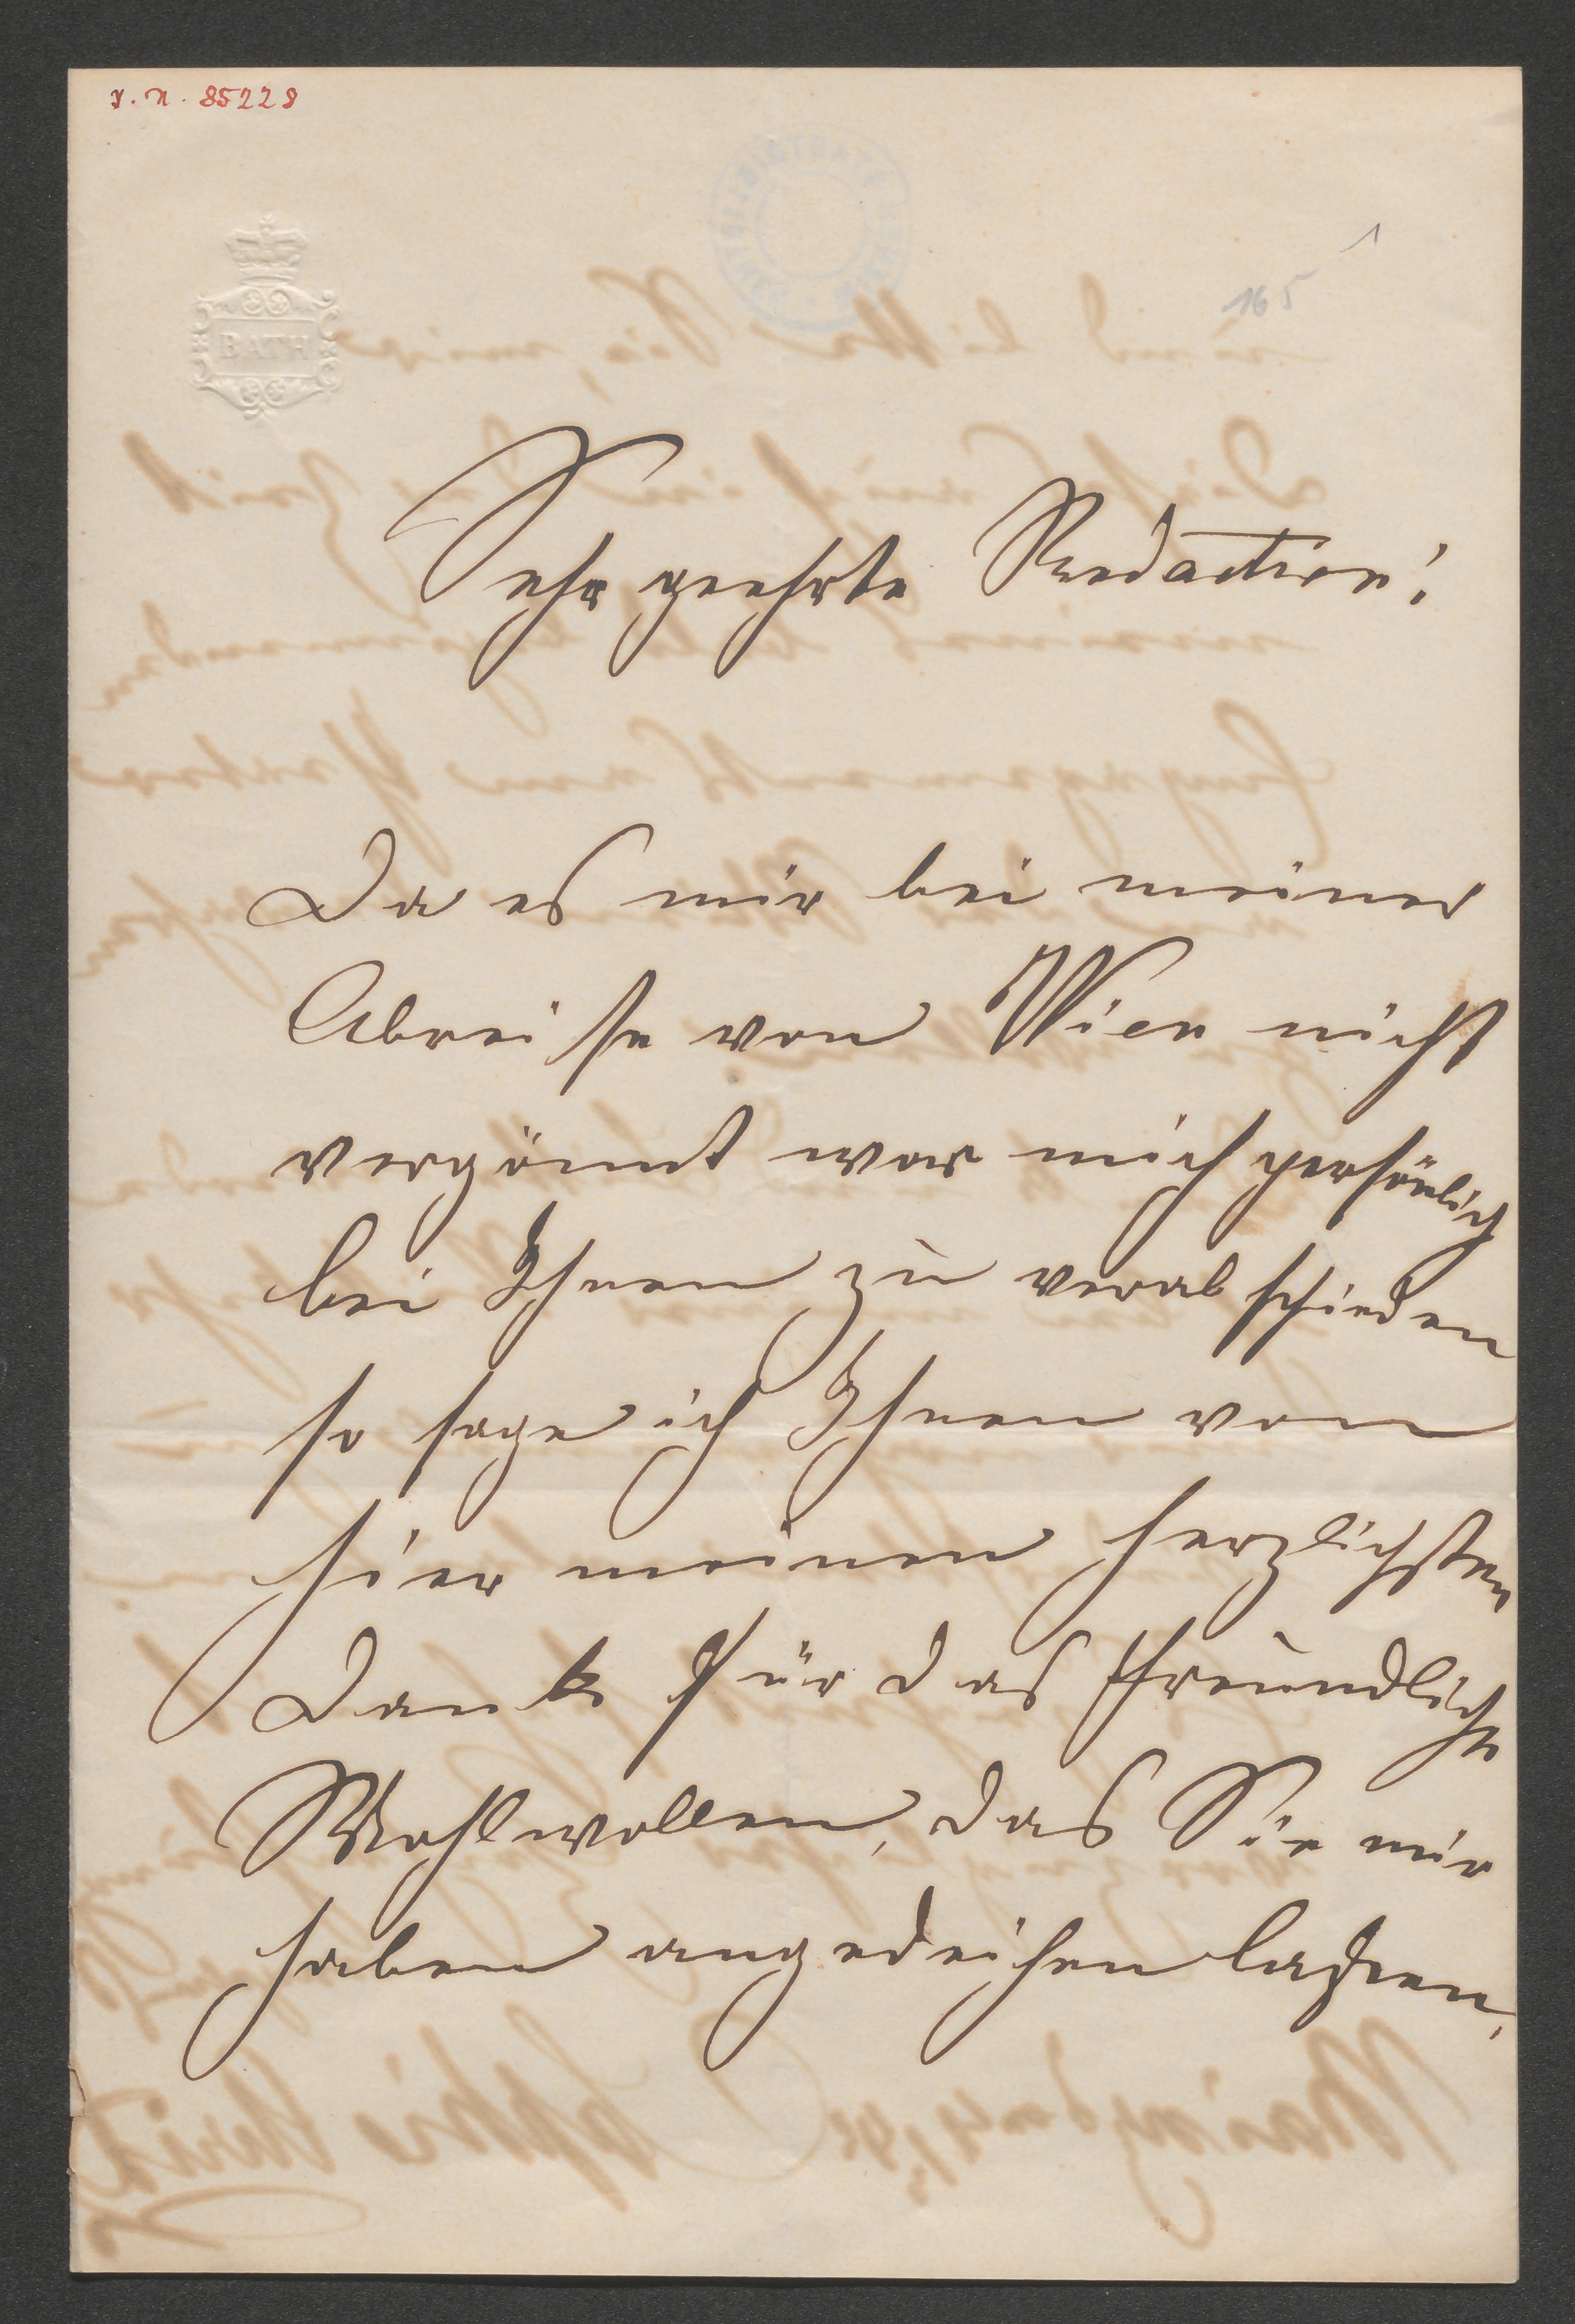 I. N. 85228
1
165
BATH
Sehr geehrte Redaction!
Da es mir bei meiner
Abreise von Wien nicht
vergönnt war mich persönlich
bei Ihnen zu verabschieden
so sage ich Ihnen von
hier meinen herzlichsten
Dank für das freundliche
Wohlwollen, das Sie mir
haben angedeihen lassen,